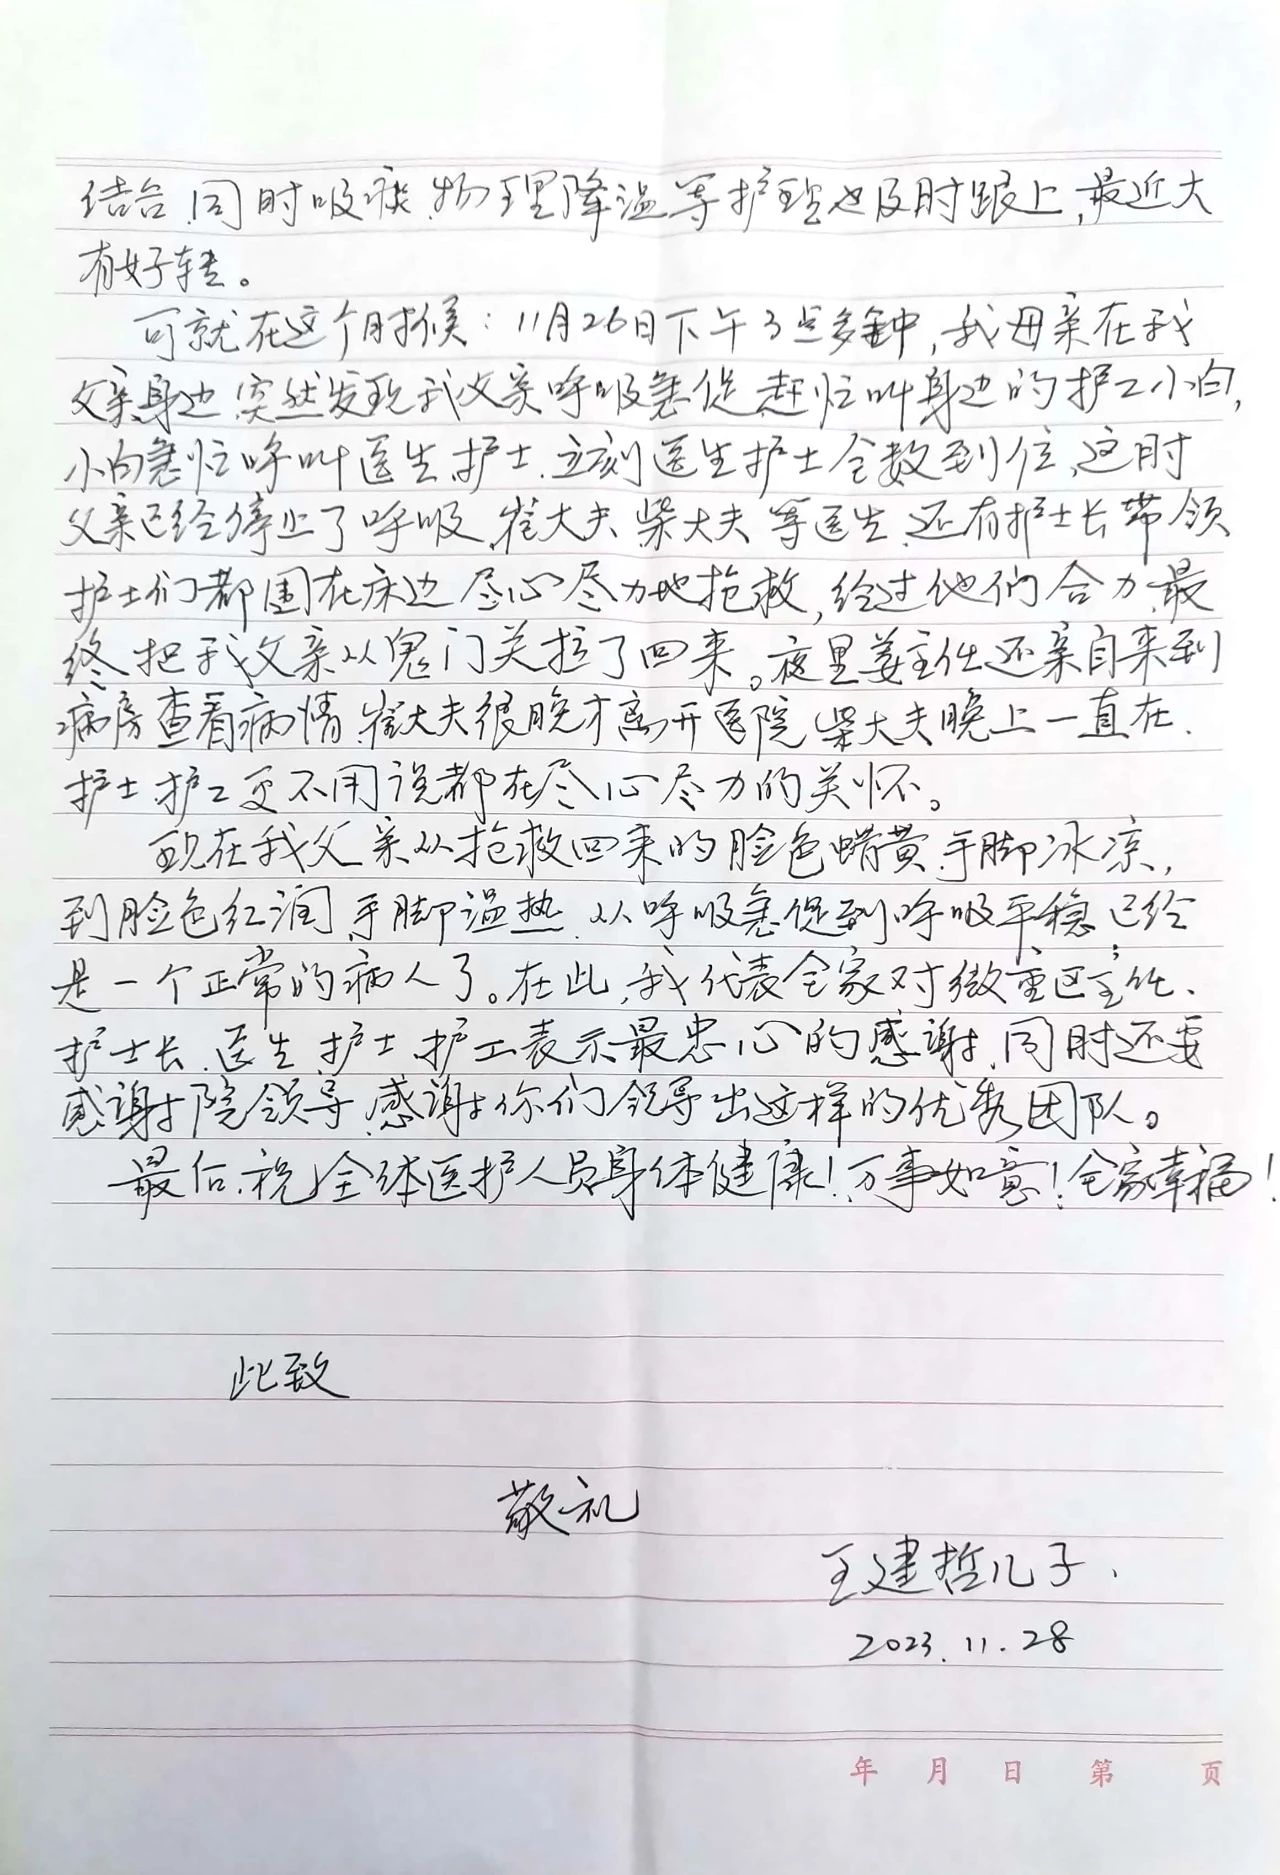 结合,同时吸痰,物理降温等护理也及时跟上,最近大
有好转。
可就在这个时候:11月26日下午3点多钟,我母亲在我
父亲身边,突然发现我父亲呼吸急促,赶忙叫身边的护工小白,
小白急忙呼叫医生,护士,立刻医生护士全数到位,这时
父亲已经停止了呼吸,崔大夫,柴大夫等医生,还有护士长带领
护士们都围在床边尽心尽力地抢救,经过他们合力,最
终把我父亲从鬼门关拉了回来。夜里姜主任还亲自来到
病房查看病情,崔大夫很晚才离开医院,柴大夫晚上一直在.
护士,护工更不用说都在尽心尽力的关怀。
现在我父亲从抢救回来的脸色蜡黄,手脚冰凉,
到脸色红润,手脚温热,从呼吸急促到呼吸平稳,已经
是一个正常的病人了。在此,我代表全家对微重区主任、
护士长,医生,护士,护工表示最忠心的感谢,同时还要
感谢院领导,感谢你们领导出这样的优秀团队。
最后,祝全体医护人员身体健康!万事如意!全家幸福!
此致
敬礼
王建哲儿子.
2023.11.28
年 月 日 第 页